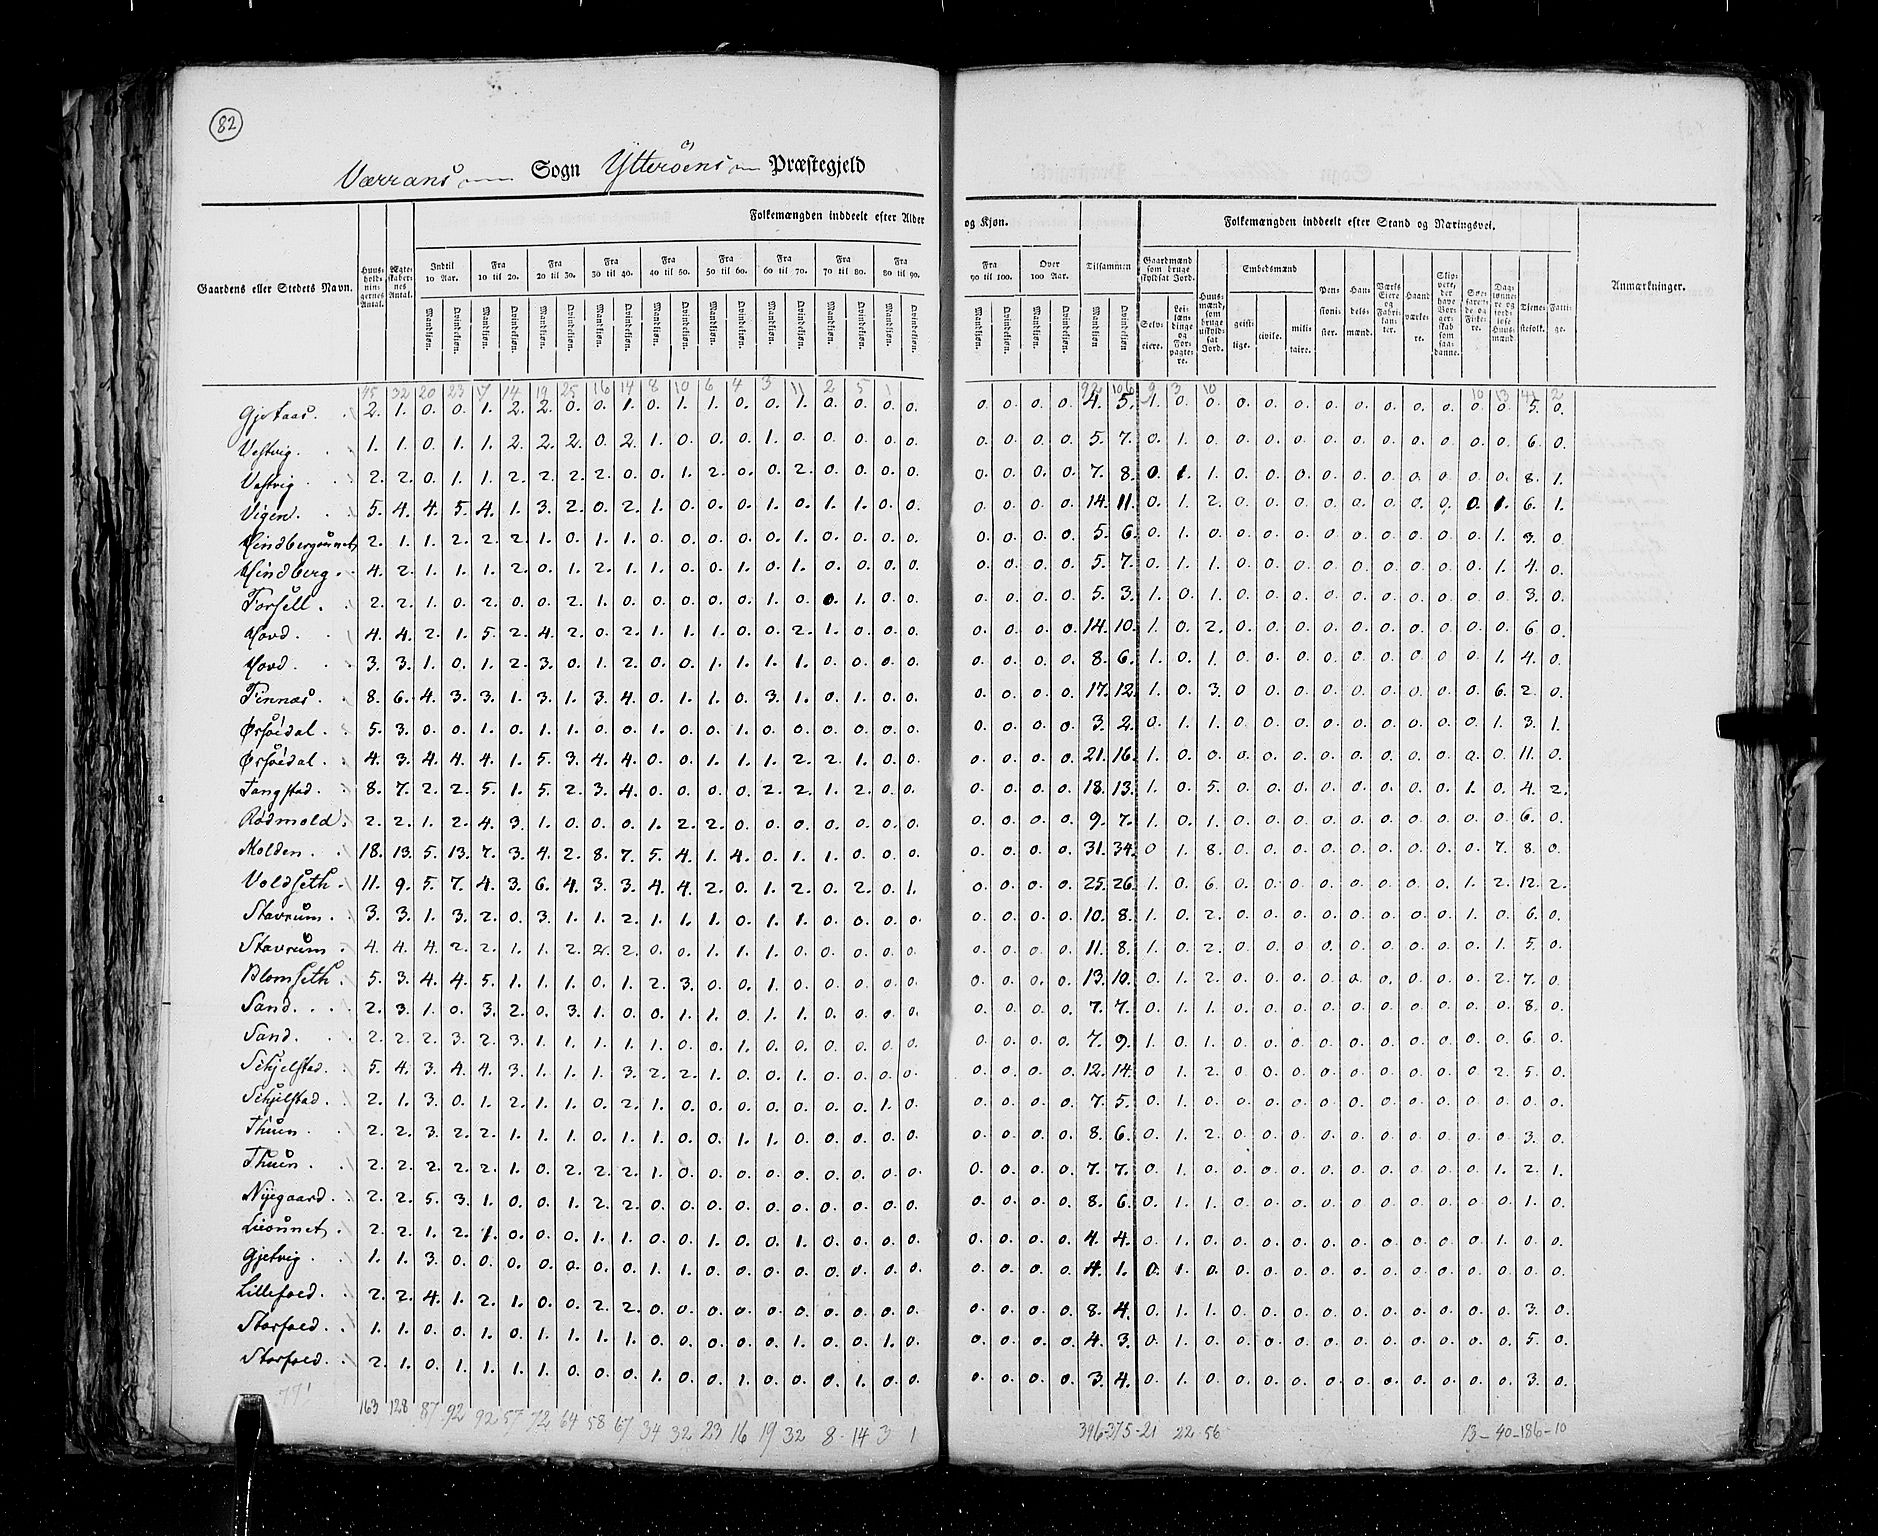 82
Værrans Sogn Ytterøens Præstegjeld
Folkemængden inddeelt efter Alder og Kjøn.
Folkemængden inddeelt efter Stand og Næringsvei.
Gaardens eller Stedets Navn.
Huusholdningernes Antal.
Ægteskabernes Antal.
Indtil 10 Aar.
Fra 10 til 20.
Fra 20 til 30.
Fra 30 til 40.
Fra 40 til 50.
Fra 50 til 60.
Fra 60 til 70.
Fra 70 til 80.
Fra 80 til 90.
Fra 90 til 100.
Over 100 Aar.
Tilsammen
Gaardmænd som bruge skyldsat Jord.
Embedsmænd
Anmærkninger.
Mandkjøn. Qvindekjøn.
Selveiere.
Leilændinge og Forpagtere.
Huusmænd, som bruge uskyldsat Jord.
geistlige. civile. militaire.
Pensionister.
Handelsmænd.
Værks Eiere og Fabrikanter.
Haandværkere.
Tienestefolk.
Fattige.
45 32 20 23 17 14 19 25 16 14 8 10 6 4 3 11 2 5 1 92 106 9 3 10 10 13 41 2
Gjetaas. 2. 1. 0. 0. 1. 2. 2. 0. 0. 1. 0. 1. 1. 0. 0. 1. 0. 0. 0. 0. 0. 0. 0. 0. 4. 5. 1. 0. 0. 0. 0. 0. 0. 0. 0. 0. 0. 0. 0. 5. 0.
Vestvig. 1. 1. 0. 1. 1. 2. 2. 2. 0. 2. 1. 0. 0. 0. 1. 0. 0. 0. 0. 0. 0. 0. 0. 0. 5. 7. 0. 1. 0. 0. 0. 0. 0. 0. 0. 0. 0. 0. 0. 6. 0.
Vestvig 2. 2. 0. 1. 1. 2. 2. 2. 2. 0. 0. 1. 2. 0. 0. 2. 0. 0. 0. 0. 0. 0. 0. 0. 7. 8. 0. 1. 1. 0. 0. 0. 0. 0. 0. 0. 0. 0. 0. 8. 1.
Vigen. 5. 4. 4. 5. 4. 1. 3. 2. 0. 2. 1. 0. 0. 0. 1. 0. 1. 1. 0. 0. 0. 0. 0. 0. 14. 11. 0. 1. 2. 0. 0. 0. 0. 0. 0. 0. 0. 0. 1. 6. 1.
Hindbergaunet 2. 1. 1. 2. 2. 2. 1. 0. 1. 1. 0. 0. 0. 0. 0. 1. 0. 0. 0. 0. 0. 0. 0. 0. 5. 6. 0. 1. 0. 0. 0. 0. 0. 0. 0. 0. 0. 0. 1. 3. 0.
Hindberg. 4. 2. 1. 1. 1. 2. 0. 1. 2. 1. 1. 0. 0. 1. 0. 1. 0. 0. 0. 0. 0. 0. 0. 0. 5. 7. 0. 1. 1. 0. 0. 0. 0. 0. 0. 0. 0. 0. 1. 4. 0.
Forsell. 2. 2. 1. 0. 2. 0. 0. 2. 1. 0. 0. 0. 0. 0. 1. 0. 0. 1. 0. 0. 0. 0. 0. 0. 5. 3. 1. 0. 1. 0. 0. 0. 0. 0. 0. 0. 0. 0. 0. 3. 0.
Hovd. 4. 4. 2. 1. 5. 2. 4. 2. 0. 2. 1. 1. 1. 0. 0. 2. 1. 0. 0. 0. 0. 0. 0. 0. 14. 10. 1. 0. 2. 0. 0. 0. 0. 0. 0. 0. 0. 0. 0. 6. 0.
Hovd. 3. 3. 1. 0. 1. 2. 3. 0. 1. 2. 0. 0. 1. 1. 1. 1. 0. 0. 0. 0. 0. 0. 0. 0. 8. 6. 1. 0. 1. 0. 0. 0. 0. 0. 0. 0. 0. 0. 1. 4. 0.
Finnæs. 8. 6. 4. 3. 3. 1. 3. 1. 3. 4. 0. 1. 1. 0. 3. 1. 0. 1. 0. 0. 0. 0. 0. 0. 17. 12. 1. 0. 3. 0. 0. 0. 0. 0. 0. 0. 0. 0. 6. 2. 0.
Ørsøidal. 5. 3. 0. 0. 1. 0. 1. 1. 0. 0. 1. 0. 0. 1. 0. 0. 0. 0. 0. 0. 0. 0. 0. 0. 3. 2. 0. 1. 1. 0. 0. 0. 0. 0. 0. 0. 0. 0. 1. 3. 1.
Ørsøidal. 4. 3. 4. 4. 4. 1. 5. 3. 4. 4. 0. 0. 1. 1. 1. 2. 2. 1. 0. 0. 0. 0. 0. 0. 21. 16. 1. 0. 0. 0. 0. 0. 0. 0. 0. 0. 0. 0. 0. 11. 0.
Tangstad. 8. 7. 2. 2. 5. 1. 5. 2. 3. 4. 0. 0. 0. 0. 2. 2. 1. 2. 0. 0. 0. 0. 0. 0. 18. 13. 1. 0. 5. 0. 0. 0. 0. 0. 0. 0. 0. 1. 0. 4. 2.
Rødmold. 2. 2. 1. 2. 4. 3. 1. 0. 0. 0. 1. 2. 2. 0. 0. 0. 0. 0. 0. 0. 0. 0. 0. 0. 9. 7. 1. 0. 1. 0. 0. 0. 0. 0. 0. 0. 0. 0. 0. 6. 0.
Molden. 18. 13. 5. 13. 7. 3. 4. 2. 8. 7. 5. 4. 1. 4. 0. 1. 1. 0. 0. 0. 0. 0. 0. 0. 31. 34. 0. 1. 8. 0. 0. 0. 0. 0. 0. 0. 0. 0. 7. 8. 0.
Voldseth. 11. 9. 5. 7. 4. 3. 6. 4. 3. 3. 4. 4. 2. 0. 1. 2. 0. 2. 0. 1. 0. 0. 0. 0. 25. 26. 1. 0. 6. 0. 0. 0. 0. 0. 0. 0. 0. 1. 2. 12. 2.
Stavrum. 3. 3. 1. 3. 2. 0. 3. 1. 1. 2. 1. 1. 1. 0. 1. 1. 0. 0. 0. 0. 0. 0. 0. 0. 10. 8. 1. 0. 2. 0. 0. 0. 0. 0. 0. 0. 0. 1. 0. 6. 0.
Stavrum. 4. 4. 4. 2. 2. 1. 1. 2. 2. 2. 0. 0. 1. 1. 1. 0. 0. 0. 0. 0. 0. 0. 0. 0. 11. 8. 1. 0. 2. 0. 0. 0. 0. 0. 0. 0. 0. 0. 1. 5. 0.
Blomseth. 5. 3. 4. 4. 5. 1. 1. 1. 0. 1. 2. 3. 0. 0. 1. 0. 0. 0. 0. 0. 0. 0. 0. 0. 13. 10. 0. 1. 2. 0. 0. 0. 0. 0. 0. 0. 0. 0. 2. 7. 0.
Sand. 2. 3. 1. 0. 3. 2. 0. 3. 1. 0. 0. 1. 1. 0. 1. 1. 0. 0. 0. 0. 0. 0. 0. 0. 7. 7. 0. 1. 1. 0. 0. 0. 0. 0. 0. 0. 0. 0. 0. 8. 0.
Sand. 2. 2. 2. 3. 2. 3. 1. 1. 1. 1. 1. 0. 0. 1. 0. 0. 0. 0. 0. 0. 0. 0. 0. 0. 7. 9. 1. 0. 1. 0. 0. 0. 0. 0. 0. 0. 0. 0. 0. 6. 0.
Schjelstad. 5. 4. 3. 4. 4. 3. 1. 1. 1. 3. 2. 2. 1. 0. 0. 1. 0. 0. 0. 0. 0. 0. 0. 0. 12. 14. 0. 1. 2. 0. 0. 0. 0. 0. 0. 0. 0. 0. 2. 5. 0.
Schjelstad. 2. 1. 3. 0. 1. 2. 1. 1. 0. 2. 1. 0. 0. 0. 0. 0. 0. 0. 1. 0. 0. 0. 0. 0. 7. 5. 0. 1. 0. 0. 0. 0. 0. 0. 0. 0. 0. 0. 0. 0. 0.
Thuen. 2. 2. 3. 2. 2. 1. 1. 1. 0. 1. 1. 0. 0. 1. 1. 0. 0. 0. 0. 0. 0. 0. 0. 0. 8. 6. 0. 1. 2. 0. 0. 0. 0. 0. 0. 0. 0. 0. 0. 3. 0.
Thuen. 2. 2. 2. 2. 2. 1. 0. 2. 2. 2. 1. 0. 0. 0. 0. 0. 0. 0. 0. 0. 0. 0. 0. 0. 7. 7. 0. 1. 0. 0. 0. 0. 0. 0. 0. 0. 0. 0. 1. 2. 1.
Nyegaard. 2. 2. 5. 3. 1. 0. 0. 1. 2. 2. 0. 0. 0. 0. 0. 0. 0. 0. 0. 0. 0. 0. 0. 0. 8. 6. 0. 1. 1. 0. 0. 0. 0. 0. 0. 0. 0. 0. 0. 1. 0.
Lieaunet. 2. 2. 1. 2. 1. 0. 0. 0. 1. 1. 0. 0. 1. 0. 0. 1. 0. 0. 0. 0. 0. 0. 0. 0. 4. 4. 0. 1. 0. 0. 0. 0. 0. 0. 0. 0. 0. 0. 1. 0. 0.
Gjetvig. 1. 1. 3. 0. 0. 0. 0. 0. 0. 0. 1. 1. 0. 0. 0. 0. 0. 0. 0. 0. 0. 0. 0. 0. 4. 1. 0. 1. 0. 0. 0. 0. 0. 0. 0. 0. 0. 0. 0. 0. 0.
Lillefoed. 2. 2. 4. 1. 2. 1. 0. 0. 2. 2. 0. 0. 0. 0. 0. 0. 0. 0. 0. 0. 0. 0. 0. 0. 8. 4. 0. 1. 1. 0. 0. 0. 0. 0. 0. 0. 0. 0. 0. 3. 0.
Storfoed. 1. 1. 0. 0. 1. 0. 1. 1. 1. 1. 0. 0. 0. 0. 0. 1. 0. 0. 1. 0. 0. 0. 0. 0. 4. 3. 0. 1. 0. 0. 0. 0. 0. 0. 0. 0. 0. 0. 0. 5. 0.
Storfoed. 2. 1. 0. 1. 1. 1. 1. 1. 0. 0. 0. 1. 0. 0. 1. 0. 0. 0. 1. 0. 0. 0. 0. 0. 0. 3. 4. 0. 1. 0. 0. 0. 0. 0. 0. 0. 0. 0. 0. 0. 3. 0.
771
163 128 87 92 92 57 72 64 58 67 34 32 23 16 19 32 8 14 3 1 396-375-21 22 56 13-40-186-10